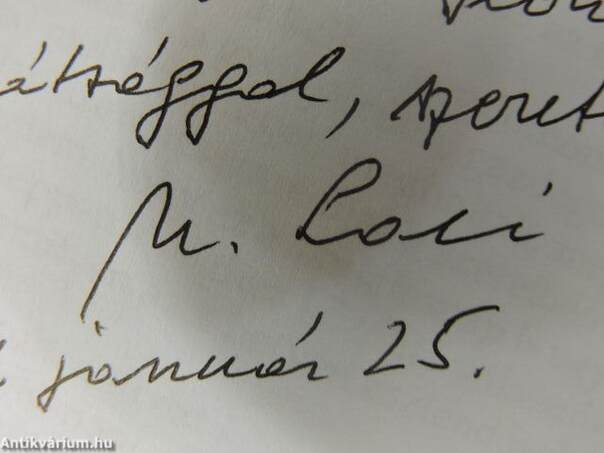 átsággal, szeret
M. Laci
január 25.
Antikvárium.hu